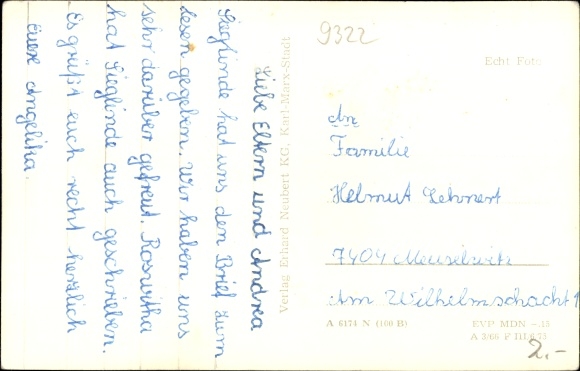 9322
Echt Foto
Liebe Eltern und Andrea
Sieglinde hat uns den Brief zum
Lesen gegeben. Wir haben uns
sehr darüber gefreut. Roswitha
hat Sieglinde auch geschrieben.
Es grüßt euch recht herzlich
eure Angelika.
Verlag Erhard Neubert KG, Karl-Marx-Stadt
An
Familie
Helmut Lehnert
7404 Meuselwitz
Am Wilhelmschacht
A 6174 N (160 B)
EVP MDN -.15
A 3/66
2.-